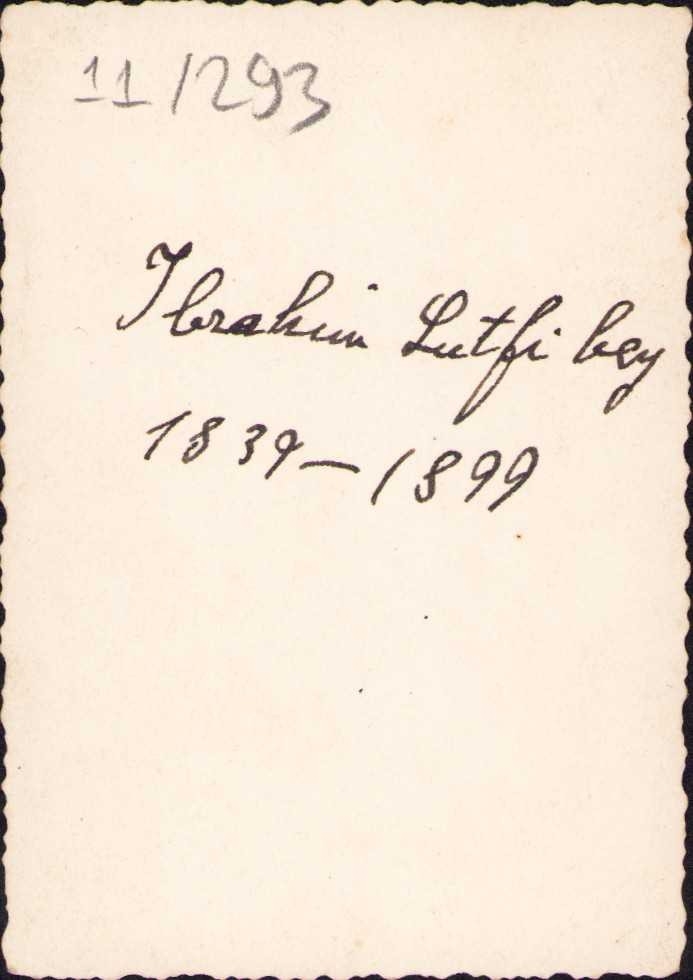 11/293
Ibrahim Lutfi bey
1839-1899